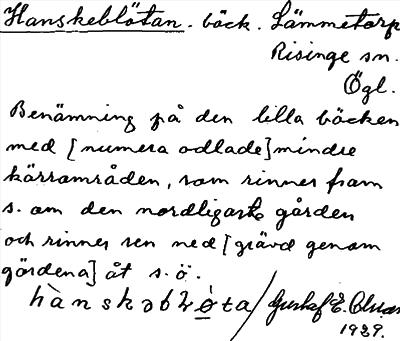 Hanskeblötan. bäck. Lämmetorp
Risinge sn.
Ögl.
Benämning på den lilla bäcken
med [numera odlade] mindre
kärrområden, som rinner fram
s. om den nordligaste gården
och rinner sen ned [grävd genom
gärdena] åt s.ö.
Gustaf E.
1929.